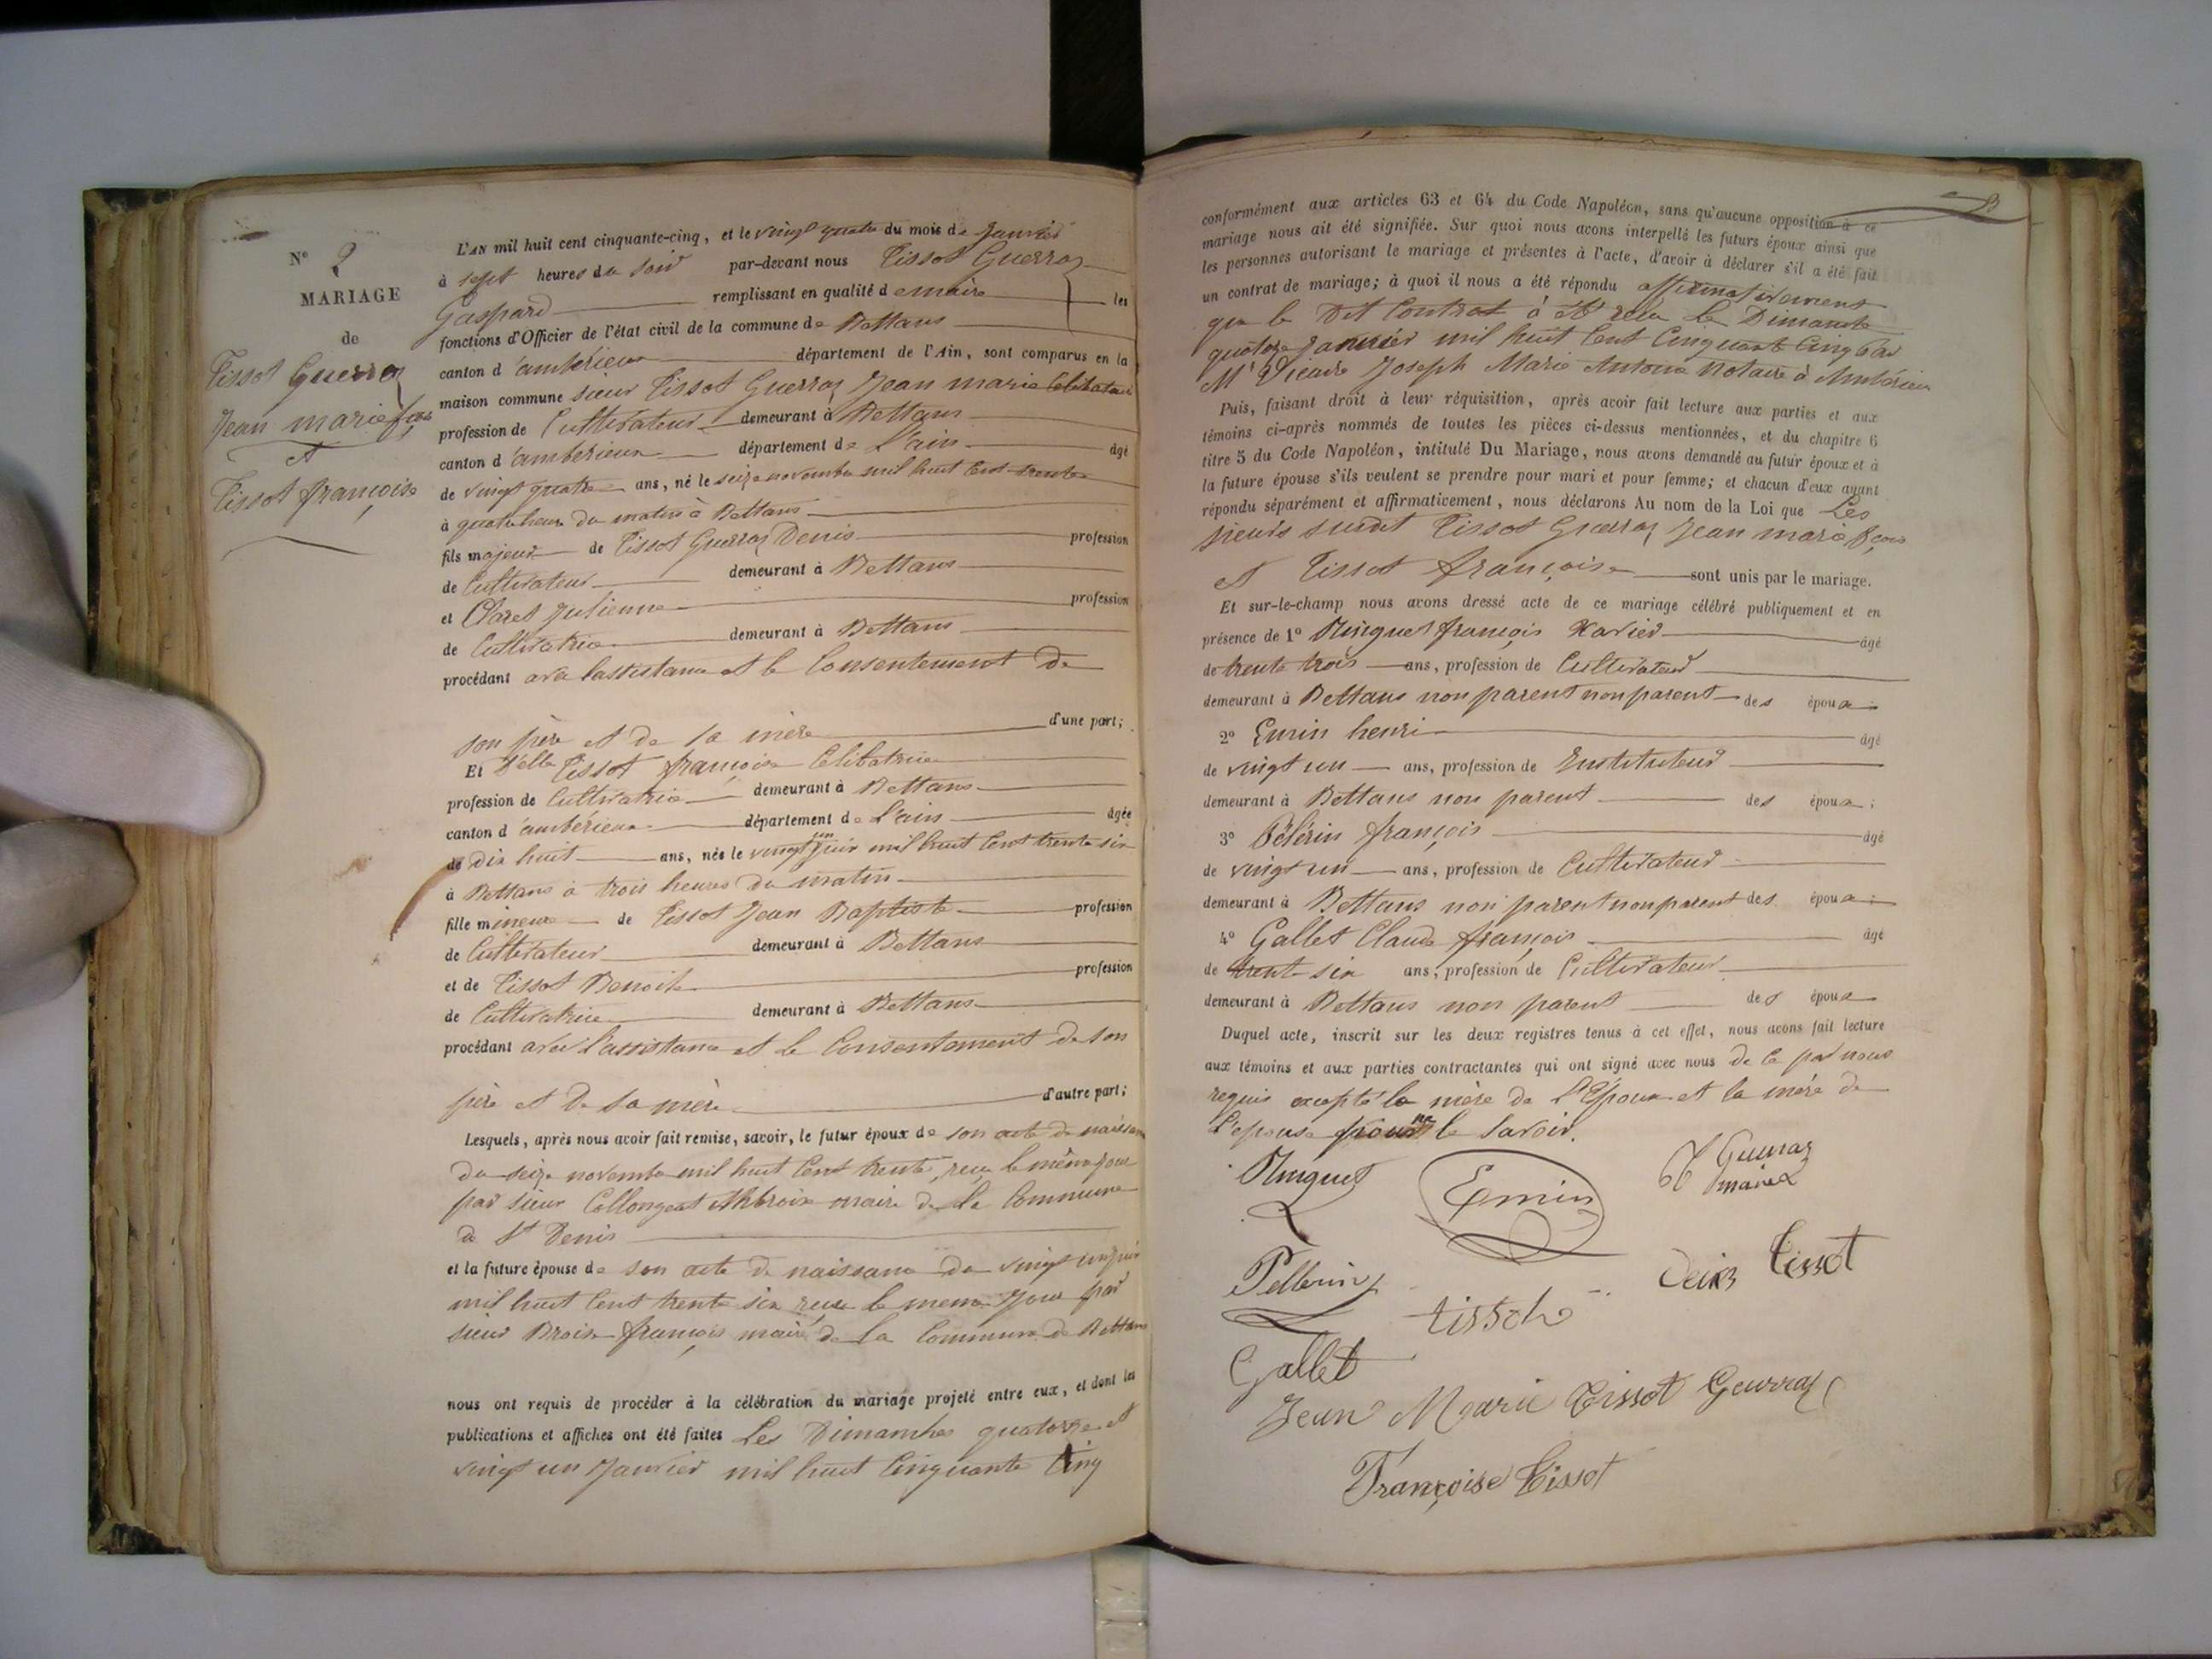 N° 2
MARIAGE
de
Tissot Guerraz
Jean marie fçois
et
Tissot françoise
L'AN mil huit cent cinquante-cinq, et le vingt quatre du mois de Janvier
à sept heures du soir par-devant nous Tissot Guerraz
Gaspard remplissant en qualité de maire les
fonctions d'Officier de l'état civil de la commune de Bettans
canton d'ambérieux département de l'Ain, sont comparus en la
maison commune sieur Tissot Guerraz Jean marie Célibataire
profession de Cultivateur demeurant à Bettans
canton d'ambérieux département de L'ain âgé
de vingt quatre ans, né le seize novembre mil huit Cent trente
à quatre heures du matin à Bettans
fils majeur de Tissot Guerraz Denis profession
de Cultivateur demeurant à Bettans
et Claret Julienne profession
de Cultivatrice demeurant à Bettans
procédant avec l'assistance et le Consentement de
son père et de sa mère d'une part;
Et d'elle Tissot françoise Célibatrice
profession de Cultivatrice demeurant à Bettans
canton d'ambérieux département de L'ain âgée
de dix huit ans, née le vingt un juin mil huit Cent trente six
à Bettans à trois heures du matin
fille mineure de Tissot Jean Baptiste profession
de Cultivateur demeurant à Bettans
et de Tissot Benoite profession
de Cultivatrice demeurant à Bettans
procédant avec l'assistance et le Consentement de son
père et de sa mère d'autre part;
Lesquels, après nous avoir fait remise, savoir, le futur époux de son acte de naissance
du seize novembre mil huit Cent trente, reçu le même jour
par sieur Collongeat Ambroise maire de la Commune
de St Denis
et la future épouse de son acte de naissance du vingt un juin
mil huit Cent trente six reçu le meme Jour par
sieur Broise françois maire de la Commune de Bettans
nous ont requis de procéder à la célébration du mariage projeté entre eux, et dont les
publications et affiches ont été faites Les Dimanches quatorze et
vingt un Janvier mil huit Cinquante Cinq
conformément aux articles 63 et 64 du Code Napoléon, sans qu'aucune opposition à ce
mariage nous ait été signifiée. Sur quoi nous avons interpellé les futurs époux ainsi que
les personnes autorisant le mariage et présentes à l'acte, d'avoir à déclarer s'il a été fait
un contrat de mariage; à quoi il nous a été répondu affirmativement
que le dit Contrat a été reçu le Dimanche
quatorze Janvier mil huit Cent Cinquante Cinq par
Mr Vicaire Joseph Marie Antoine Notaire à Ambérieux
Puis, faisant droit à leur réquisition, après avoir fait lecture aux parties et aux
témoins ci-après nommés de toutes les pièces ci-dessus mentionnées, et du chapitre 6
titre 5 du Code Napoléon, intitulé Du Mariage, nous avons demandé au futur époux et à
la future épouse s'ils veulent se prendre pour mari et pour femme; et chacun d'eux ayant
répondu séparément et affirmativement, nous déclarons Au nom de la Loi que Les
sieurs susdit Tissot Guerraz Jean marie fçois
et Tissot françoise sont unis par le mariage.
Et sur-le-champ nous avons dressé acte de ce mariage célébré publiquement et en
présence de 1° Minguet françois Xavier âgé
de trente trois ans, profession de Cultivateur
demeurant à Bettans non parent non parent des époux
2° Emin henri âgé
de vingt un ans, profession de Instituteur
demeurant à Bettans non parent des époux;
3° Pélérin françois âgé
de vingt un ans, profession de Cultivateur
demeurant à Bettans non parent non parent des époux;
4° Gallet Claude françois âgé
de trente six ans, profession de Cultivateur
demeurant à Bettans non parent des époux
Duquel acte, inscrit sur les deux registres tenus à cet effet, nous avons fait lecture
aux témoins et aux parties contractantes qui ont signé avec nous de ce par nous
requis excepté la mère de L'Epoux et la mère de
L'epouse pour ne le savoir.
Minguet
Emin
T Guerraz
maire
Pellerin
tissot
Denis Tissot
Gallet
Jean Marie Tissot Geurraz
Françoise Tissot